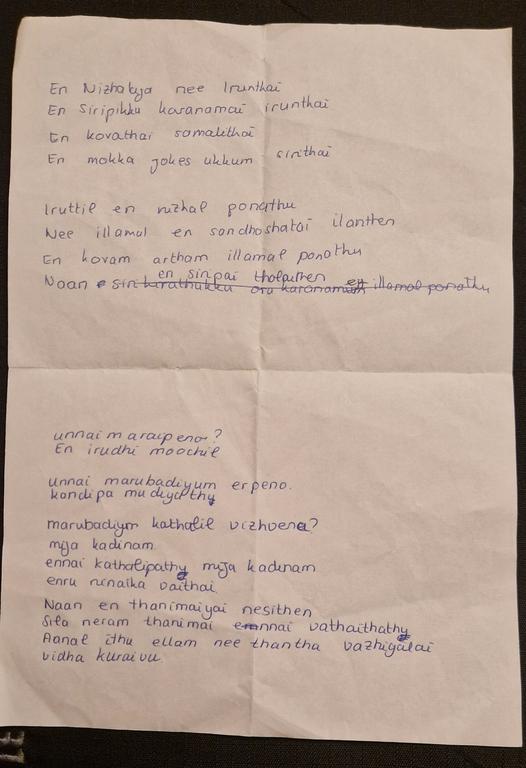 En Nizhalya nee Irunthai
En Siripikku karanamai irunthai
En kovathai samalithai
En mokka jokes ukkum sirithai
Iruttil en nizhal ponathu
Nee illamal en sandhoshatai ilanthen
En kovam artham illamal ponathu
en siripai tholaithen
Naan sirikirathukku oru karanamum illamal ponathu
unnai maraipeno?
En irudhi moochil
unnai marubadiyum erpeno.
kandipa mudiyathy
marubadiym kathalil vizhvena?
mija kadinam
ennai kathalipathy mija kadinam
enru ninaika vaithai.
Naan en thanimaiyai nesithen
Sila neram thanimai ennai vathaithathy
Aanal ithu ellam nee thantha vazhigalai
vidha kuraivu